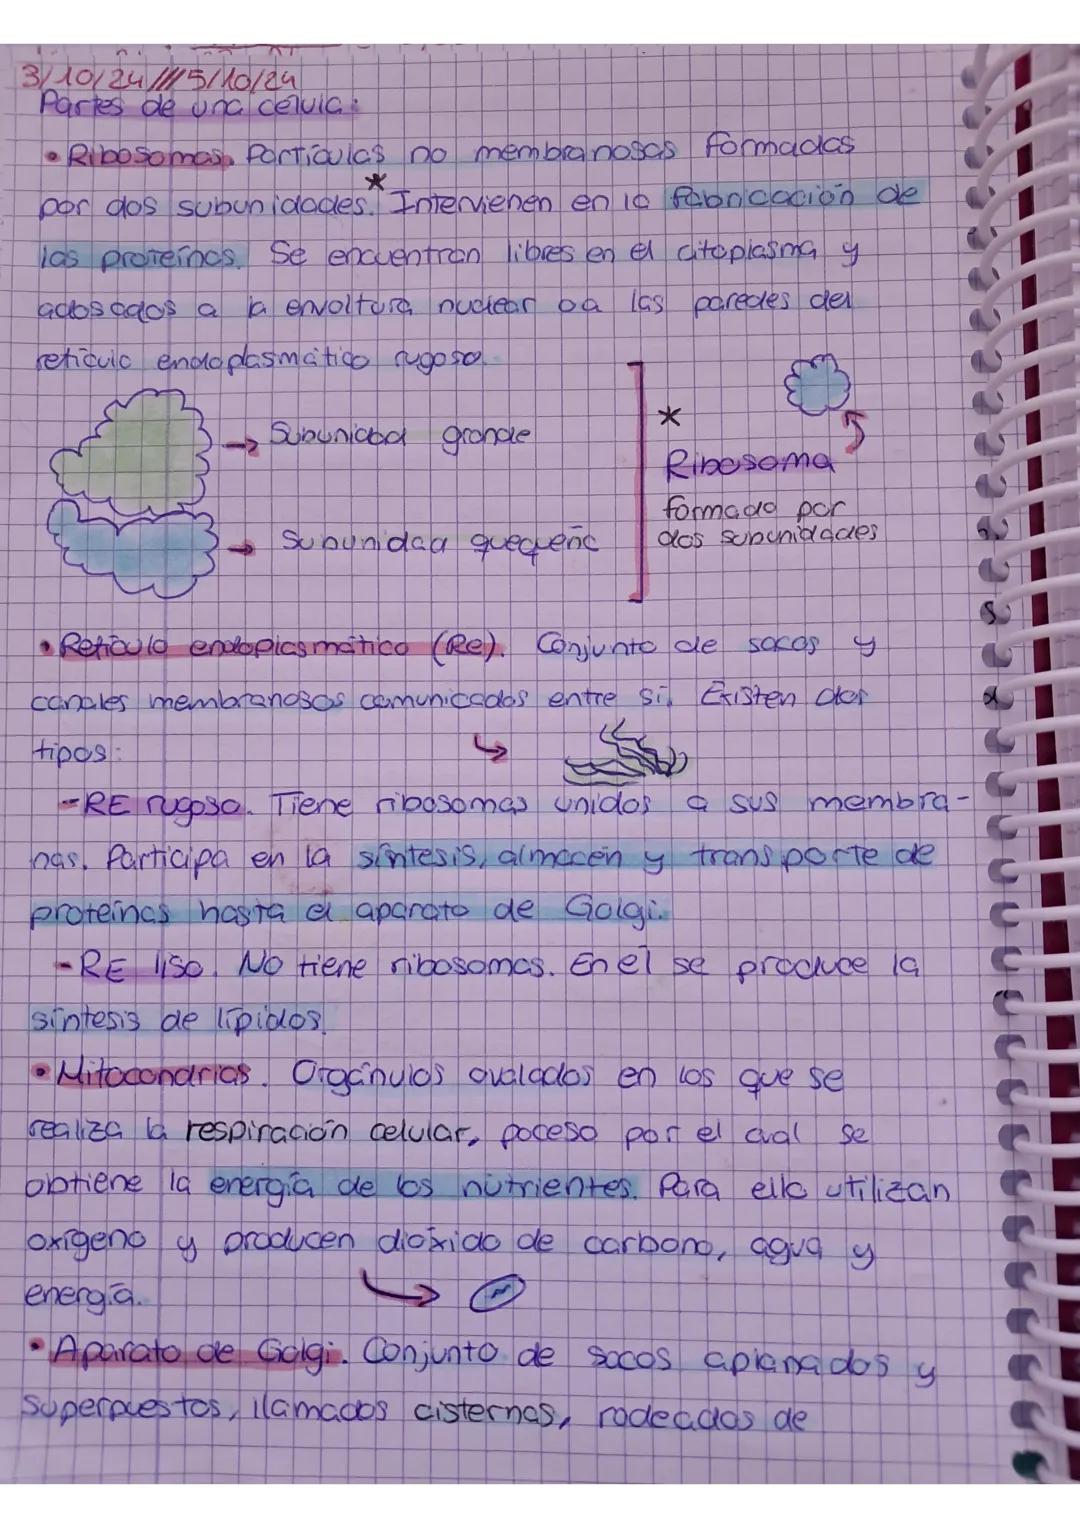 3/10/24///5/10/24
Partes de una célula:
• Ribosomas. Partículas no membranosas formadas
por dos subunidades.* Intervienen en la fabricación de
las proteínas. Se encuentran libres en el citoplasma y
adosados a la envoltura nuclear o a las paredes del
retículo endoplasmático rugoso.
→ Subunidad grande
→ Subunidad quequeña
*
Ribosoma
formado por
dos subunidades
• Retículo endoplasmático (Re). Conjunto de sacos y
canales membranosos comunicados entre sí. Existen dos
tipos:
- RE rugoso. Tiene ribosomas unidos a sus membra-
nas. Participa en la síntesis, almacén y transporte de
proteínas hasta el aparato de Golgi.
- RE liso. No tiene ribosomas. En el se produce la
síntesis de lípidos.
• Mitocondrias. Orgánulos ovalados en los que se
realiza la respiración celular, poceso por el cual se
obtiene la energía de los nutrientes. Para ello utilizan
oxígeno y producen dióxido de carbono, agua y
energía.
• Aparato de Golgi. Conjunto de sacos aplanados y
superpuestos, llamados cisternas, rodeados de